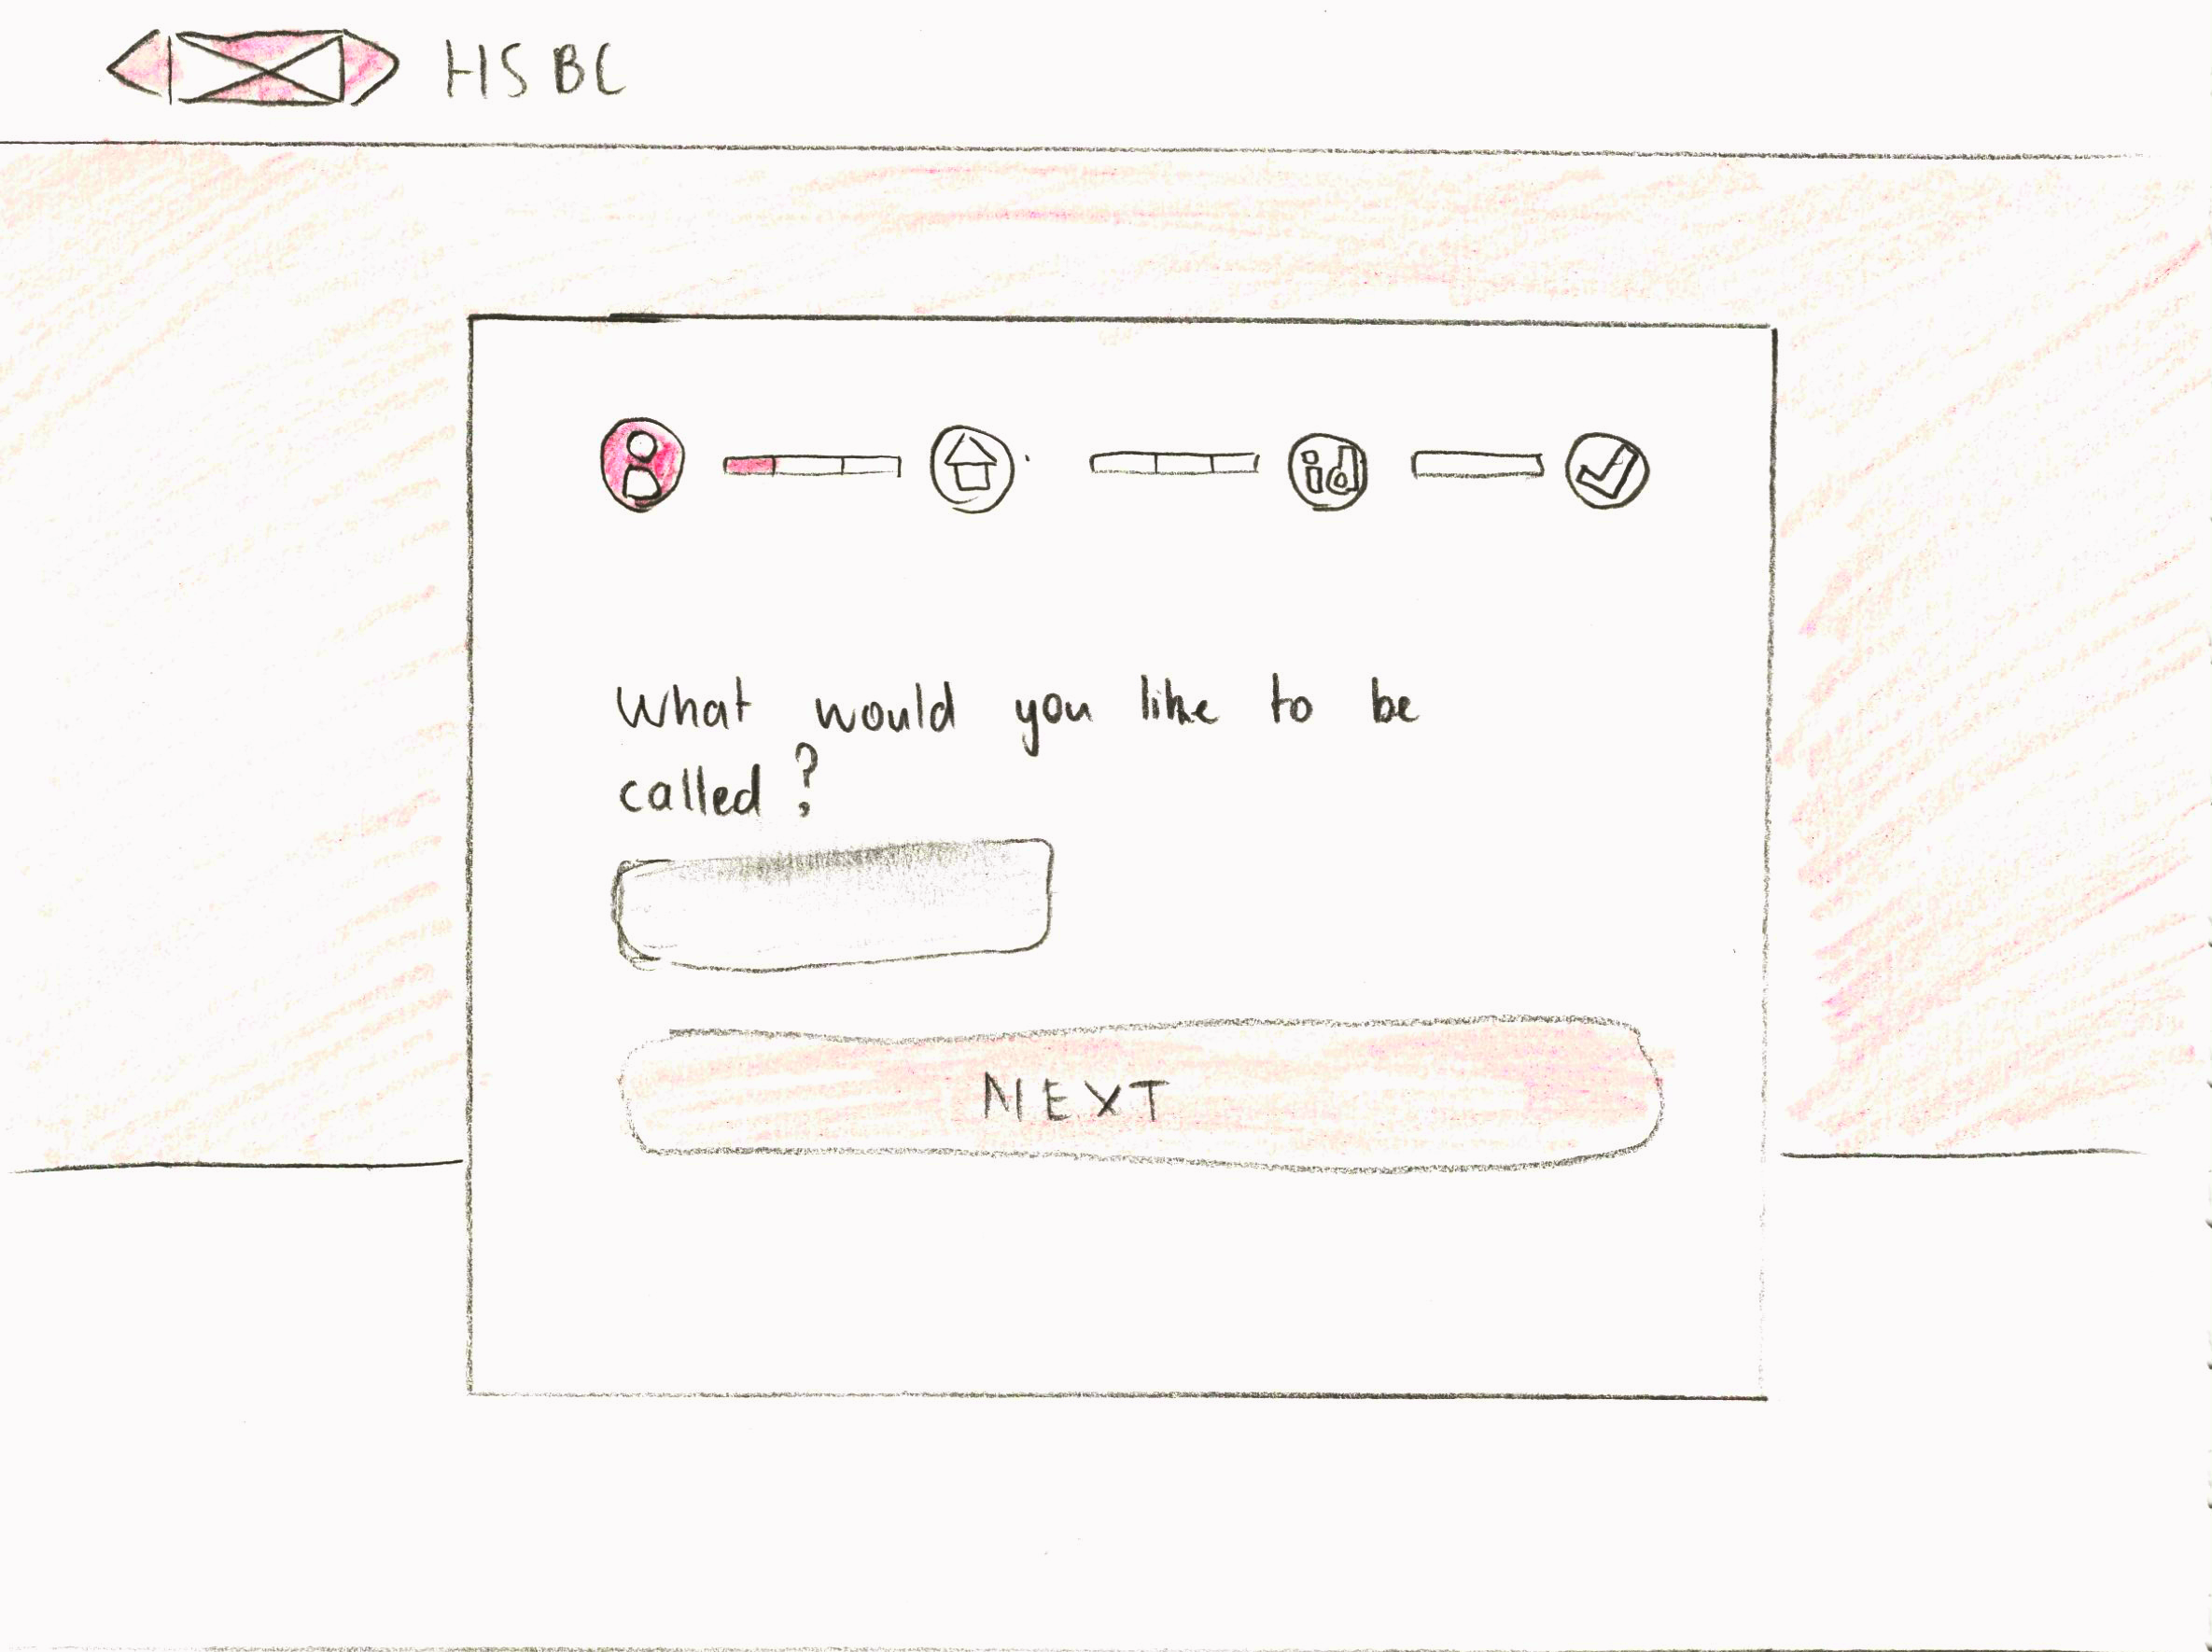 HSBC
id
What would you like to be
called?
NEXT